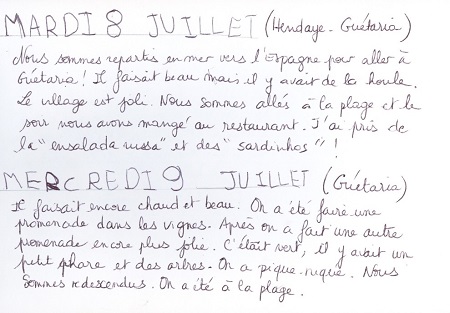 MARDI 8 JUILLET (Hendaye - Guétaria)
Nous sommes repartis en mer vers l'Espagne pour aller à
Guétaria! Il faisait beau mais il y avait de la houle.
Le village est joli. Nous sommes allés à la plage et le
soir nous avons mangé au restaurant. J'ai pris de
la "ensalada russa" et des "sardinhas"!
MERCREDI 9 JUILLET (Guétaria)
Il faisait encore chaud et beau. On a été faire une
promenade dans les vignes. Après on a fait une autre
promenade encore plus jolie. C'était vert, il y avait un
petit phare et des arbres. On a pique-nique. Nous
sommes redescendus. On a été à la plage.